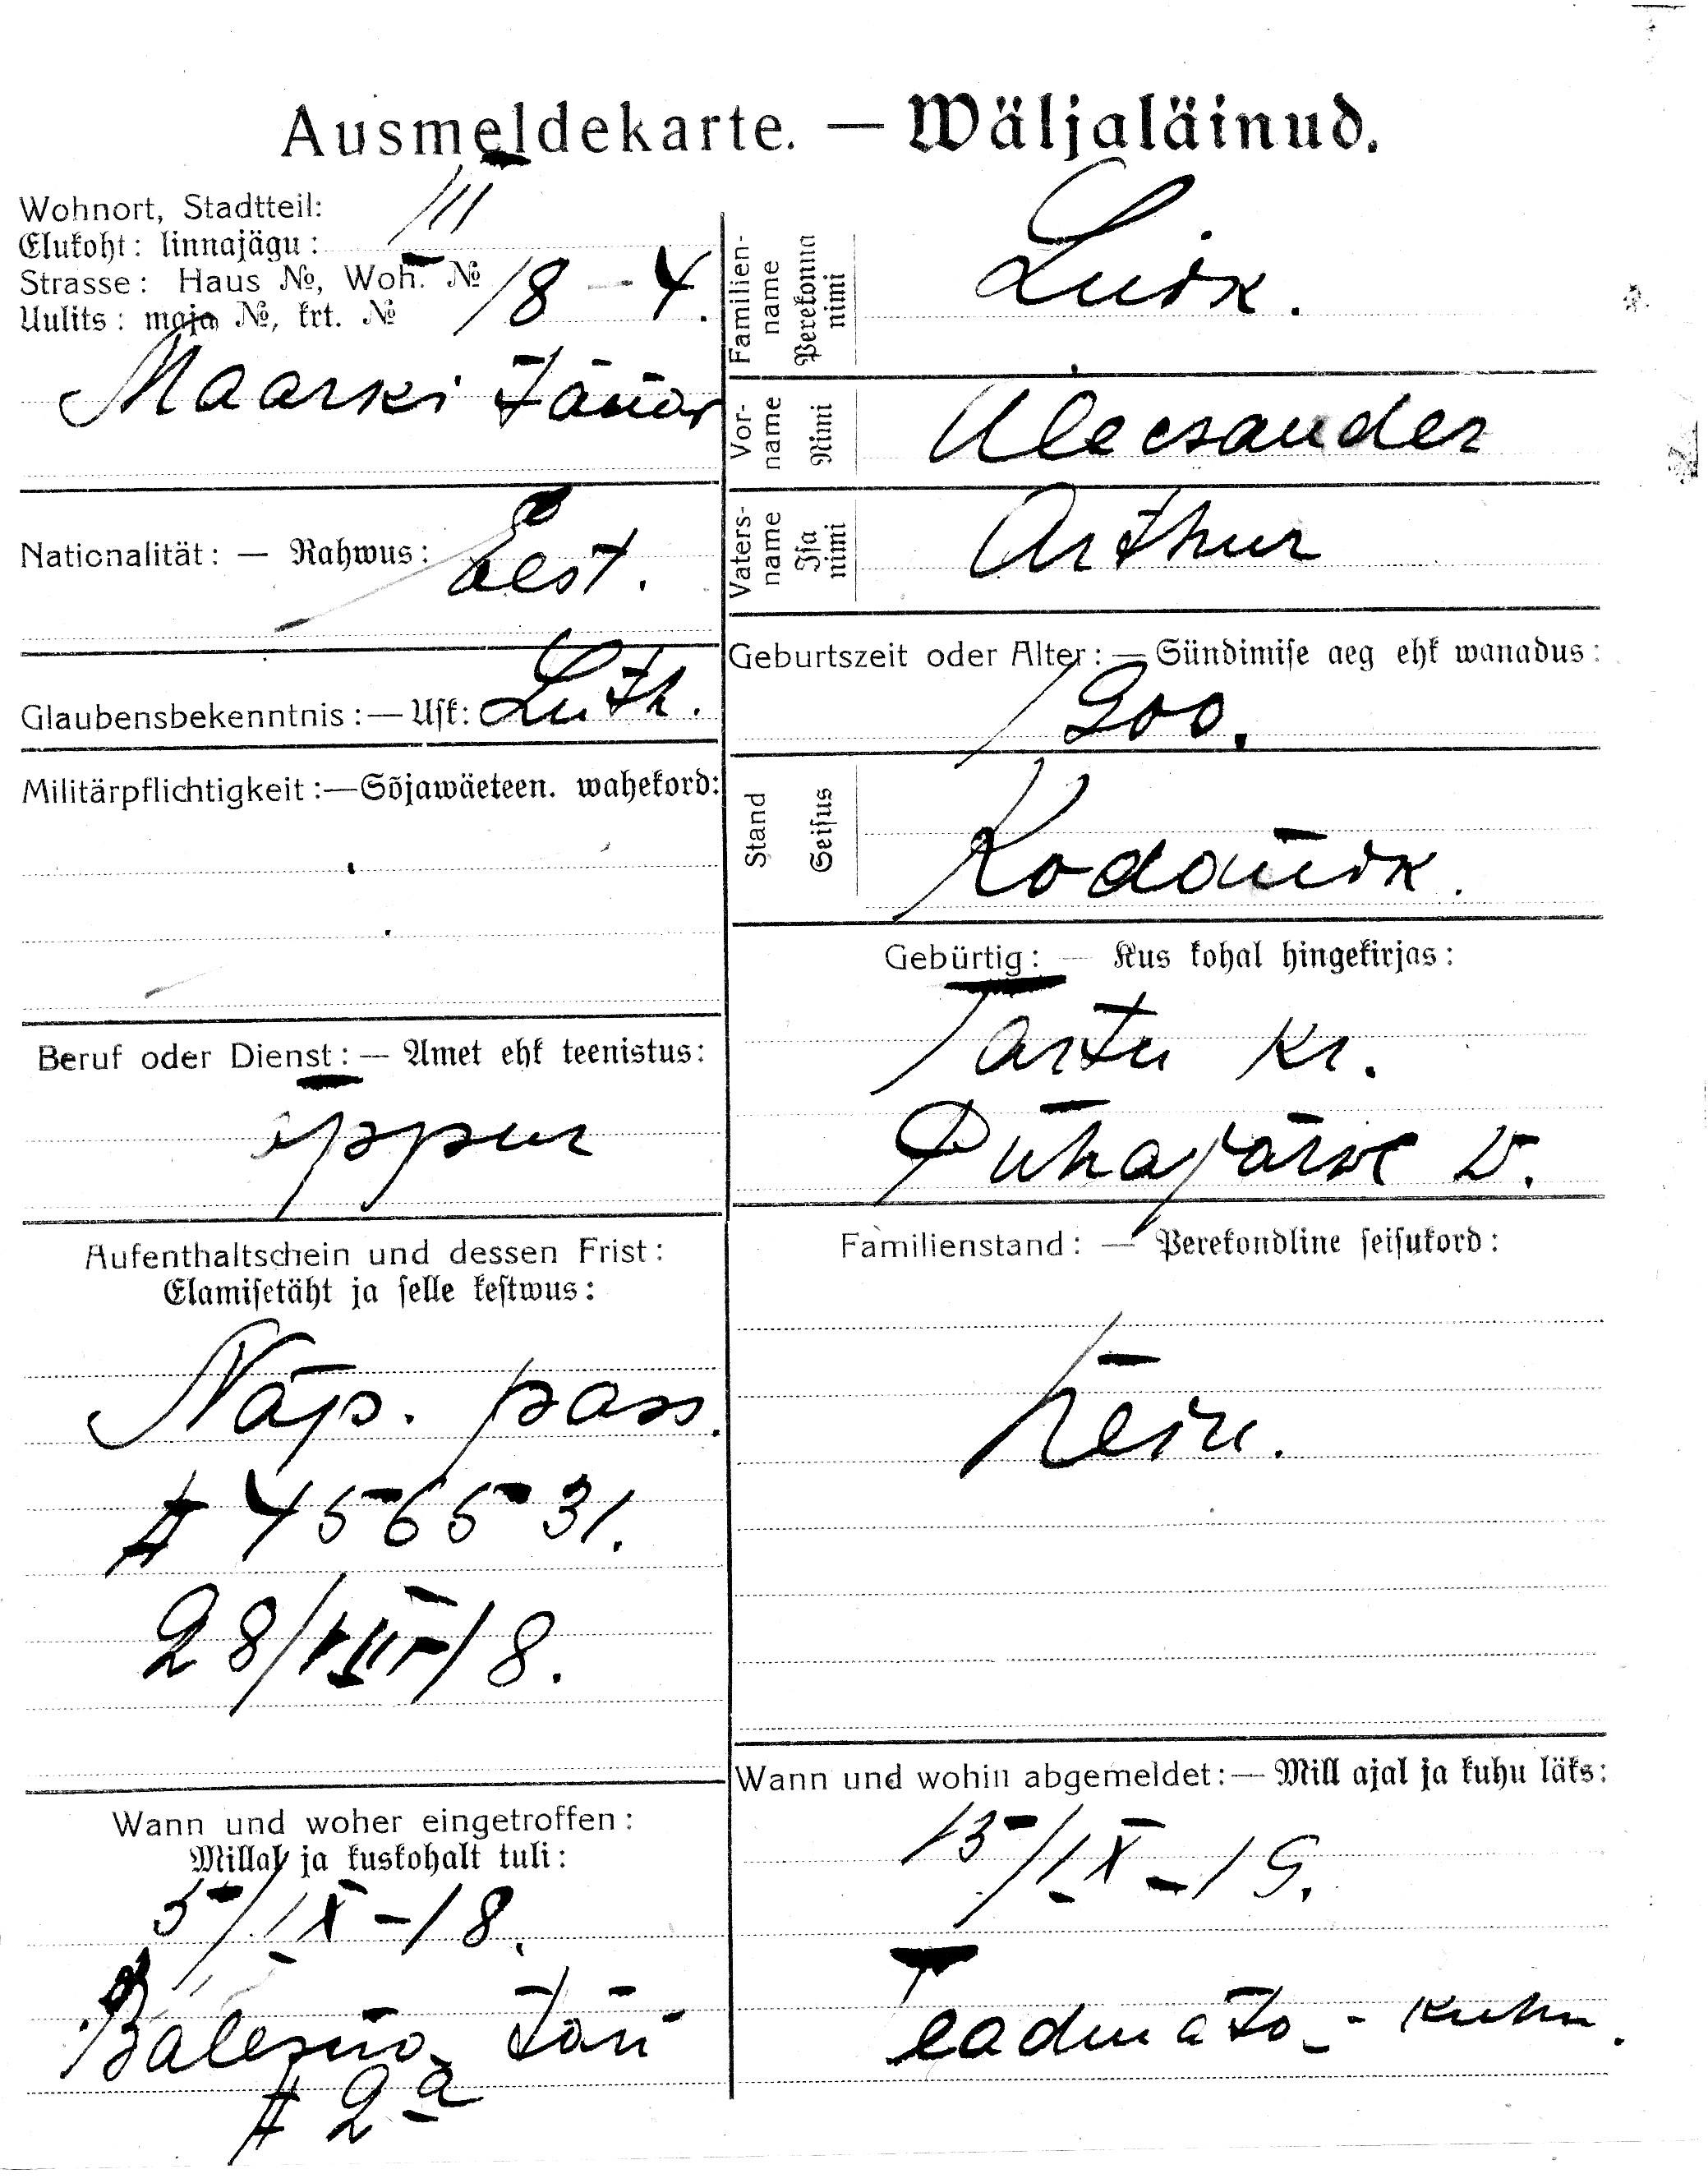 Ausmeldekarte. — Wäljaläinud.
Wohnort, Stadtteil:
Elukoht: linnajägu: III
Strasse: Haus №, Woh. №
Uulits: maja №, krt. № 18 – 4.
Maarski tänav
Nationalität: — Rahwus: Eest.
Glaubensbekenntnis: — Usk: Luth.
Militärpflichtigkeit: — Sõjawäeteen. wahekord:
Beruf oder Dienst: — Amet ehk teenistus:
õppur
Aufenthaltschein und dessen Frist:
Elamisetäht ja selle kestwus:
Näp. pass.
# 456531.
28/VIII-18.
Wann und woher eingetroffen:
Millal ja kuskohalt tuli:
5/IX-18.
tän
# 2a
Familien-name Perekonna nimi Luik.
Vor-name Nimi Alecsander
Vaters-name Isa nimi Arthur
Geburtszeit oder Alter: — Sündimise aeg ehk wanadus:
1900.
Stand Seisus Kodanik.
Gebürtig: — Kus kohal hingekirjas:
Tartu kr.
Pühajärwe v.
Familienstand: — Perekondline seisukord:
Wann und wohin abgemeldet: — Mill ajal ja kuhu läks:
15/IX-19.
Teadmata - kuhu.